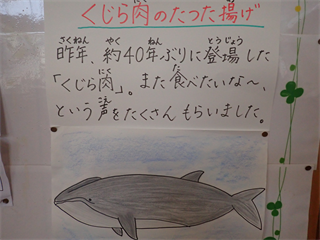 くじら肉のたつた揚げ
昨年、約40年ぶりに登場した
「くじら肉」。また食べたいな～、
という声をたくさんもらいました。